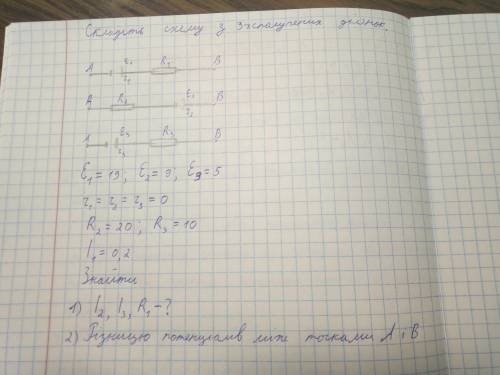 Складіть схему з 3х сполучених ділянок.
A ε₁ r₁ R₁ B
A R₂ ε₂ r₂ B
A ε₃ r₃ R₃ B
ε₁ = 19; ε₂ = 9; ε₃ = 5
r₁ = r₂ = r₃ = 0
R₂ = 20; R₃ = 10
I₁ = 0,2
Знайти
1) I₂, I₃, R₁ - ?
2) Різницю потенціалів між точками A і B